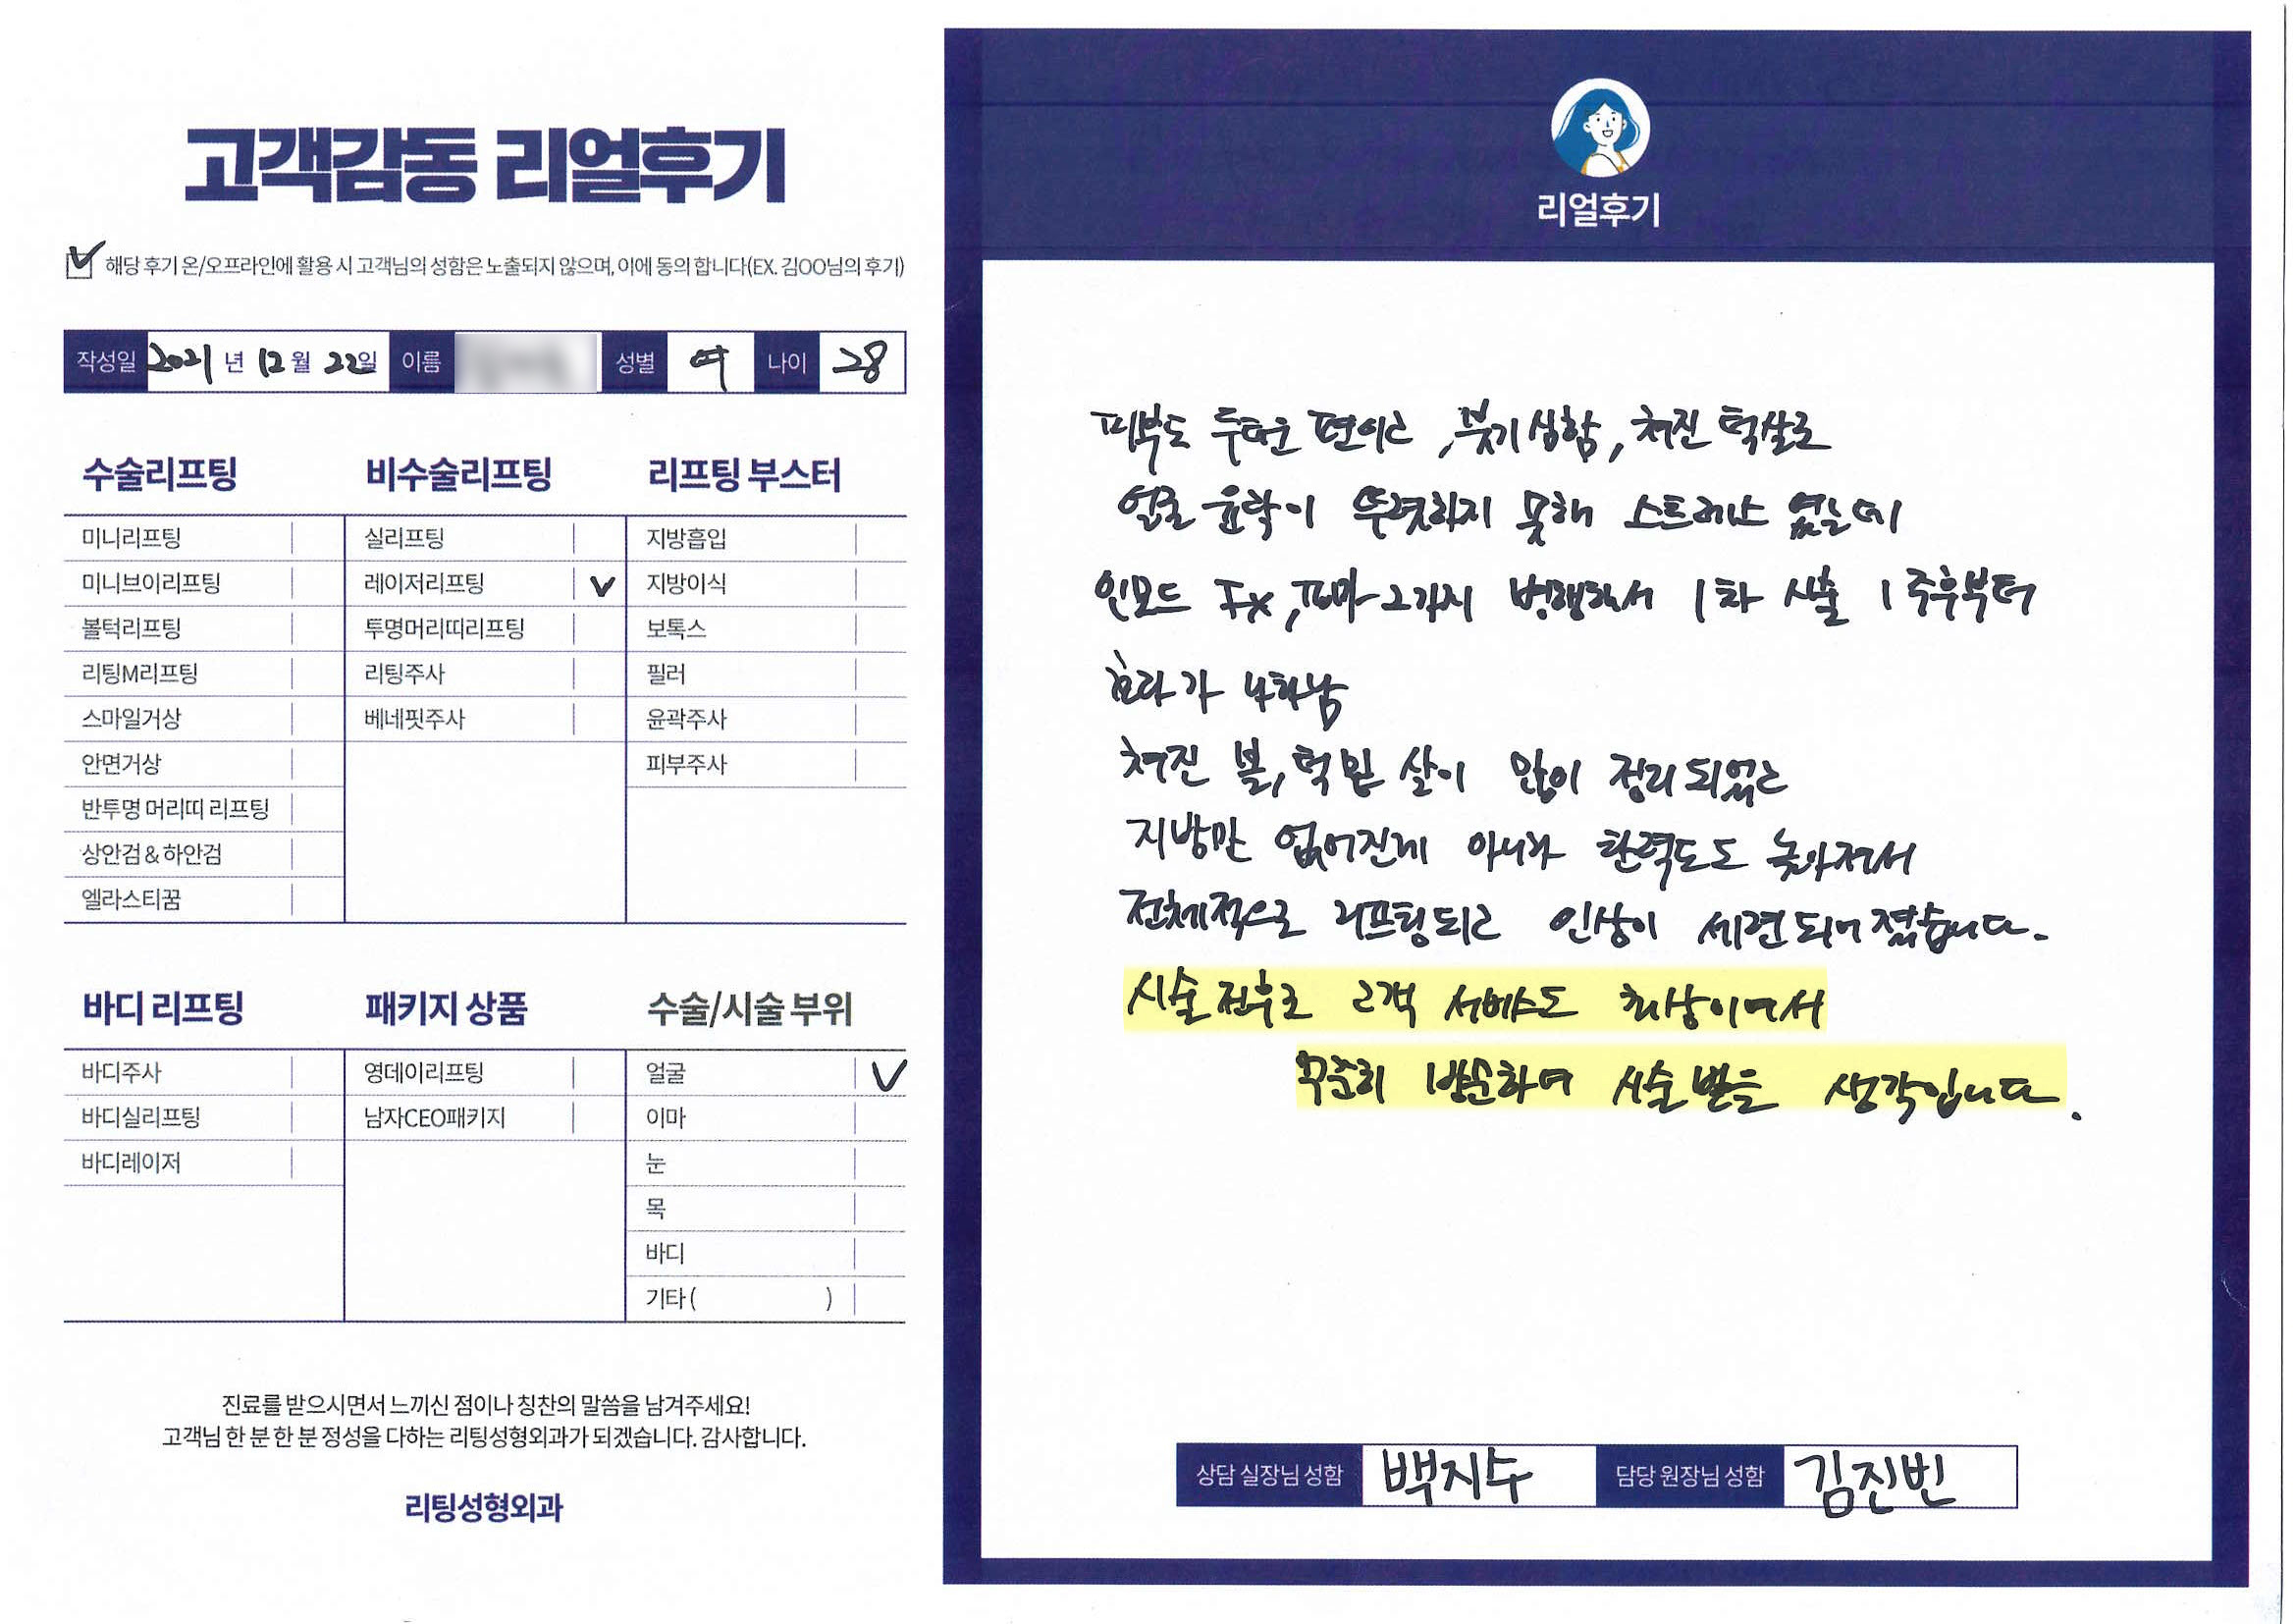 고객감동 리얼후기
해당 후기 온/오프라인에 활용 시 고객님의 성함은 노출되지 않으며, 이에 동의 합니다(EX. 김OO님의 후기)
작성일 2021년 12월 22일 이름 성별 여 나이 28
수술리프팅
미니리프팅
미니브이리프팅
볼턱리프팅
리팅M리프팅
스마일거상
안면거상
반투명 머리띠 리프팅
상안검 & 하안검
엘라스티꿈
비수술리프팅
실리프팅
레이저리프팅 V
투명머리띠리프팅
리팅주사
베네핏주사
리프팅 부스터
지방흡입
지방이식
보톡스
필러
윤곽주사
피부주사
바디 리프팅
바디주사
바디실리프팅
바디레이저
패키지 상품
영데이리프팅
남자CEO패키지
수술/시술 부위
얼굴 V
이마
눈
목
바디
기타 ( )
진료를 받으시면서 느끼신 점이나 칭찬의 말씀을 남겨주세요!
고객님 한 분 한 분 정성을 다하는 리팅성형외과가 되겠습니다. 감사합니다.
리팅성형외과
리얼후기
피부도 두터운 편이고, 붓기 심함, 쳐진 턱살로
얼굴 윤곽이 뚜렷하지 못해 스트레스 였는데
인모드 FX, 2가지 병행해서 1차 시술 1주후부터
효과가 나타남
쳐진 볼, 턱밑 살이 많이 정리 되었고
지방만 없어진게 아니라 탄력도도 높아져서
전체적으로 리프팅되고 인상이 세련되어 졌습니다.
시술 전후로 고객 서비스도 최상이여서
꾸준히 방문하여 시술 받을 생각입니다.
상담 실장님 성함 백지수 담당 원장님 성함 김진빈